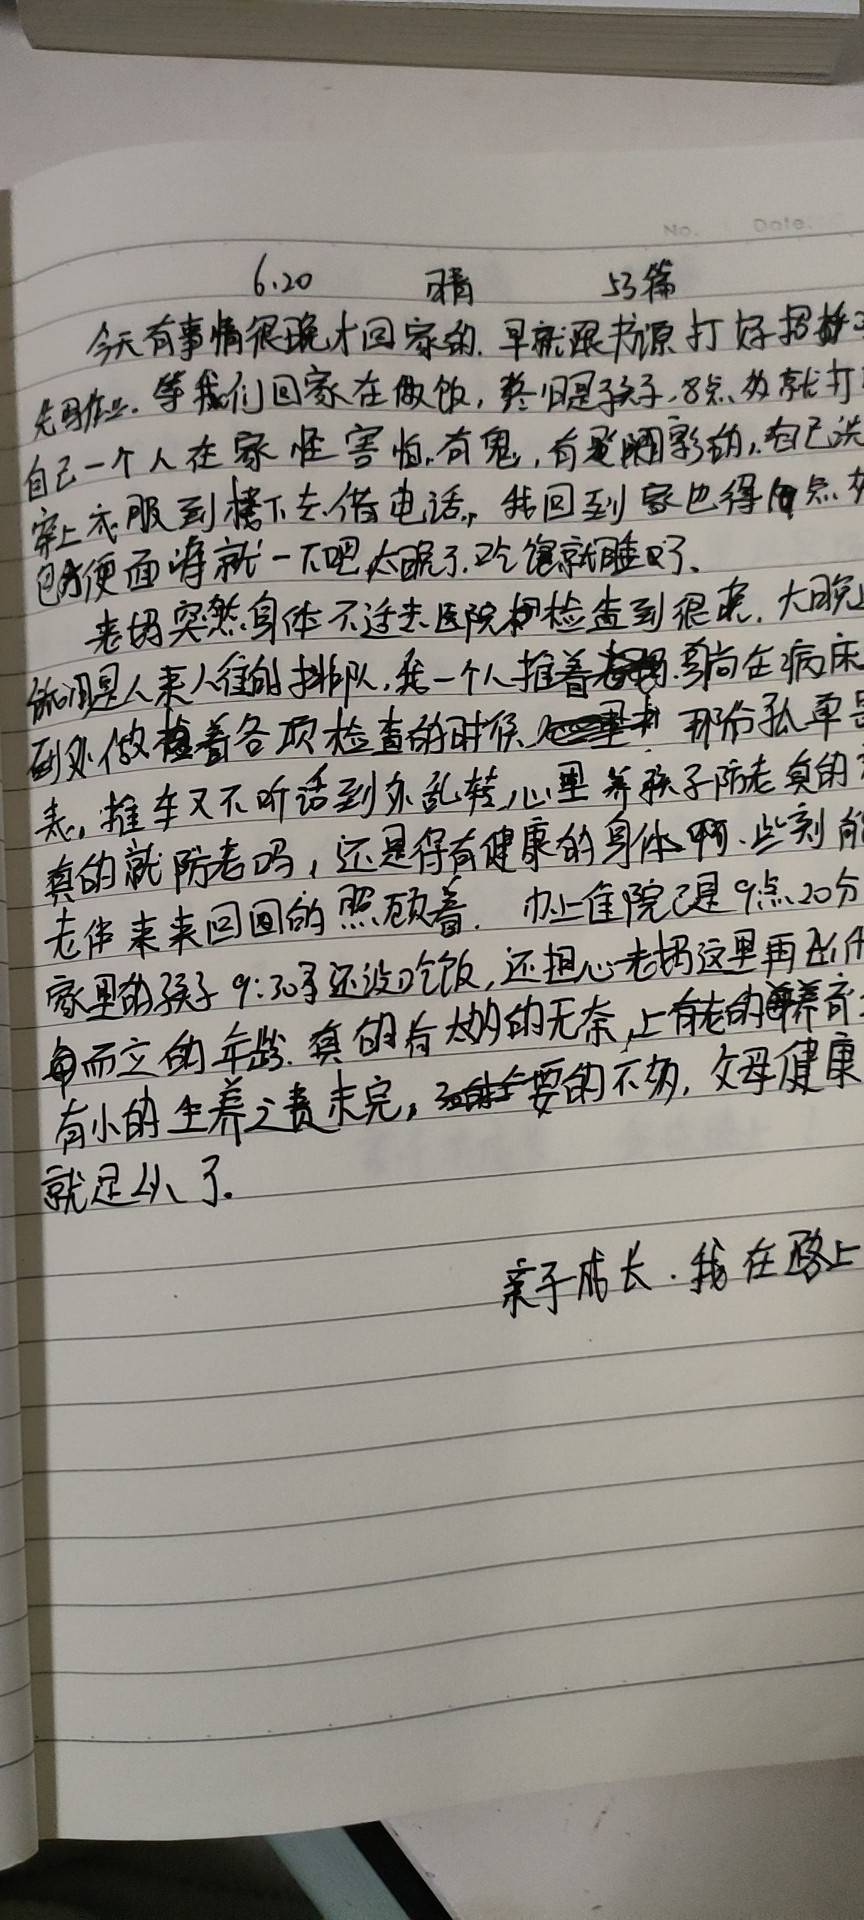 No. Date.
6.20 晴 53篇
今天有事情很晚才回家的.早就跟书源打好招呼
先写作业.等我们回家在做饭,终归是孩子.8点多就打
自己一个人在家怪害怕.有鬼,有黑影的,自己洗
穿上衣服到楼下去借电话,我回到家也得点
包方便面将就一下吧太晚了.吃饱就睡了.
老妈突然身体不适去医院检查到很晚.大晚上
人来人往的排队,我一个人推着躺在病床
到处做着各项检查的时候那份孤单
表,推车又不听话到处乱转心里养孩子防老真的
真的就防老吗,还是得有健康的身体啊.些刻
老伴来来回回的照顾着.办上住院已是9点20分
家里的孩子9:30了还没吃饭,还担心老妈这里再出什
而立的年龄.真的有太多的无奈,上有老的养育
有小的生养之责未完,要的不多,父母健康
就足以了.
亲子成长.我在路上